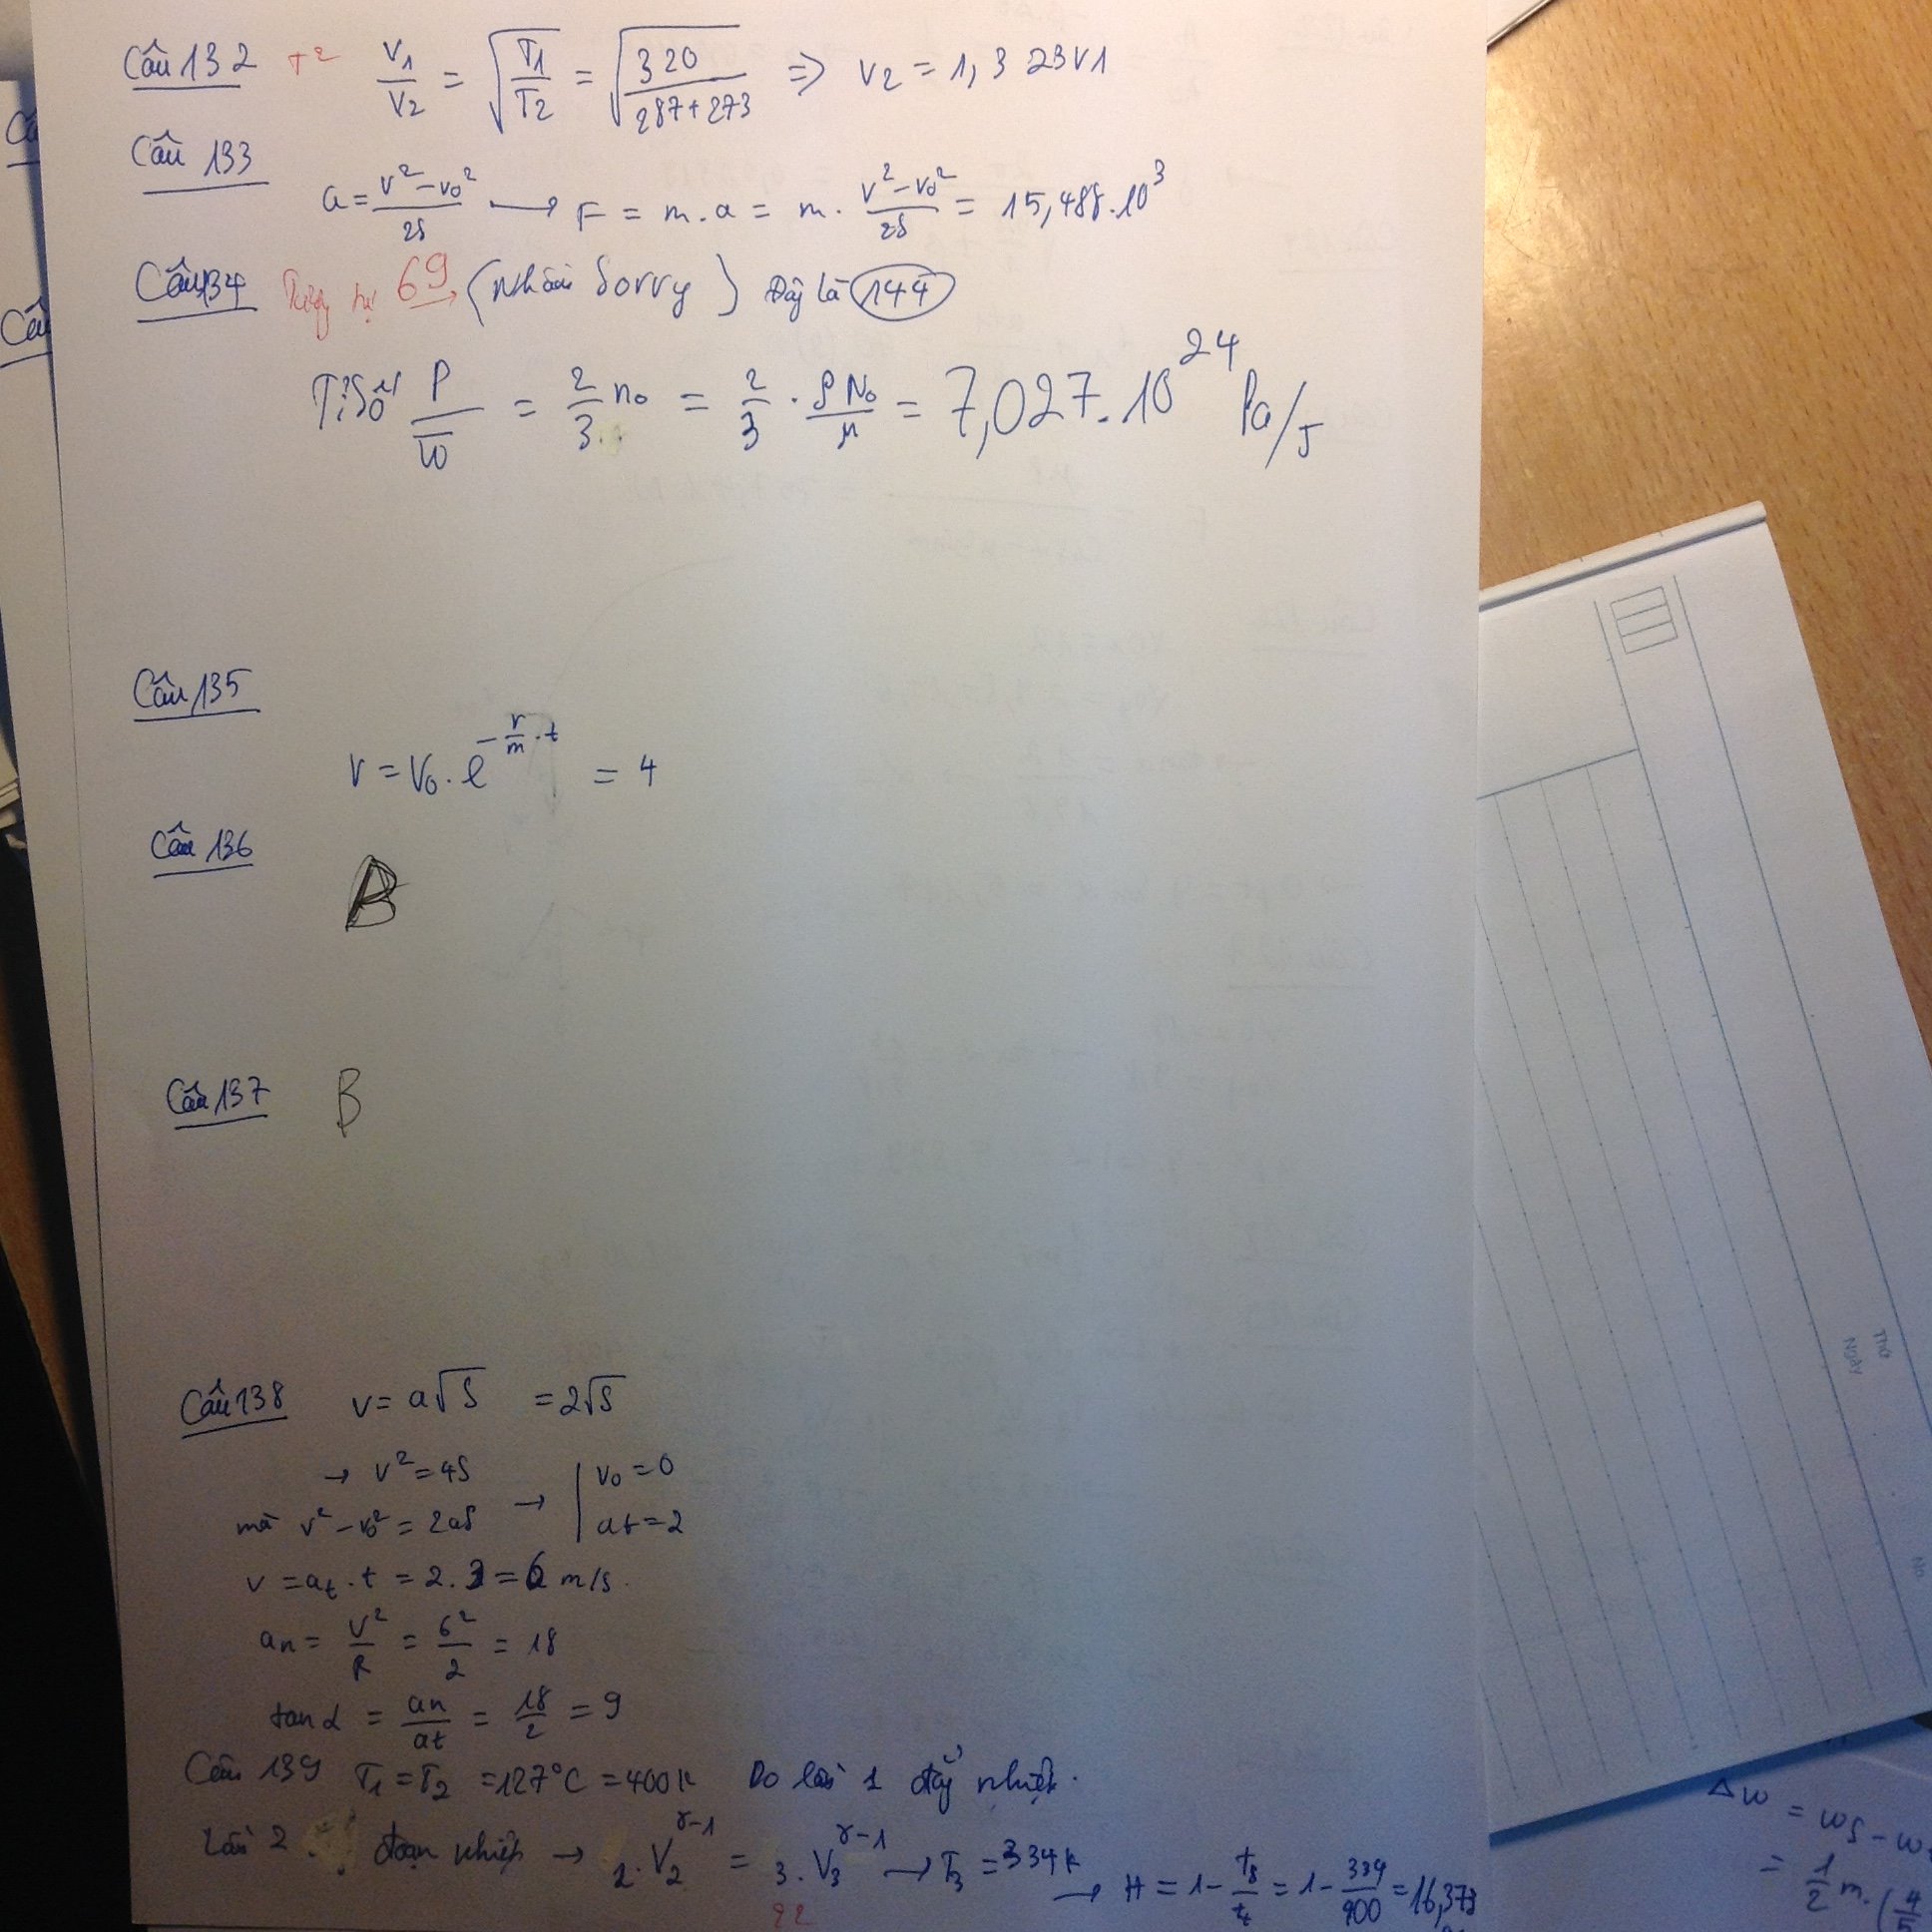 Câu 132 T² V₁/V₂ = √(T₁/T₂) = √(320/(287+273)) => V₂ = 1,323V1
Câu 133
a = (v²-v₀²)/2s → F = m.a = m. (v²-v₀²)/2s = 15,488.10³
Câu 134 69 → (Nhầm Sorry) Đây là 144
Tỉ số P/W̅ = 2/3 n₀ = 2/3 . ρN₀/μ = 7,027.10²⁴ Pa/J
Câu 135
v = v₀.e^(-r/m.t) = 4
Câu 136
B
Câu 137 B
Câu 138 v = a√S = 2√S
→ v² = 4S
mà v²-v₀² = 2aS → | v₀ = 0
at = 2
v = at.t = 2.3 = 6 m/s.
an = v²/R = 6²/2 = 18
tan α = an/at = 18/2 = 9
Câu 139 T₁ = T₂ = 127°C = 400K Do lần 1 đẳng nhiệt.
Lần 2 đoạn nhiệt → 2.V₂^(γ-1) = 3.V₃^(γ-1) → T₃ = 334K
→ H = 1 - = 1 - 334/400 = 16,373
22
Thứ
Ngày
No
ΔW = WS - W
= 1/2 m.(4/5